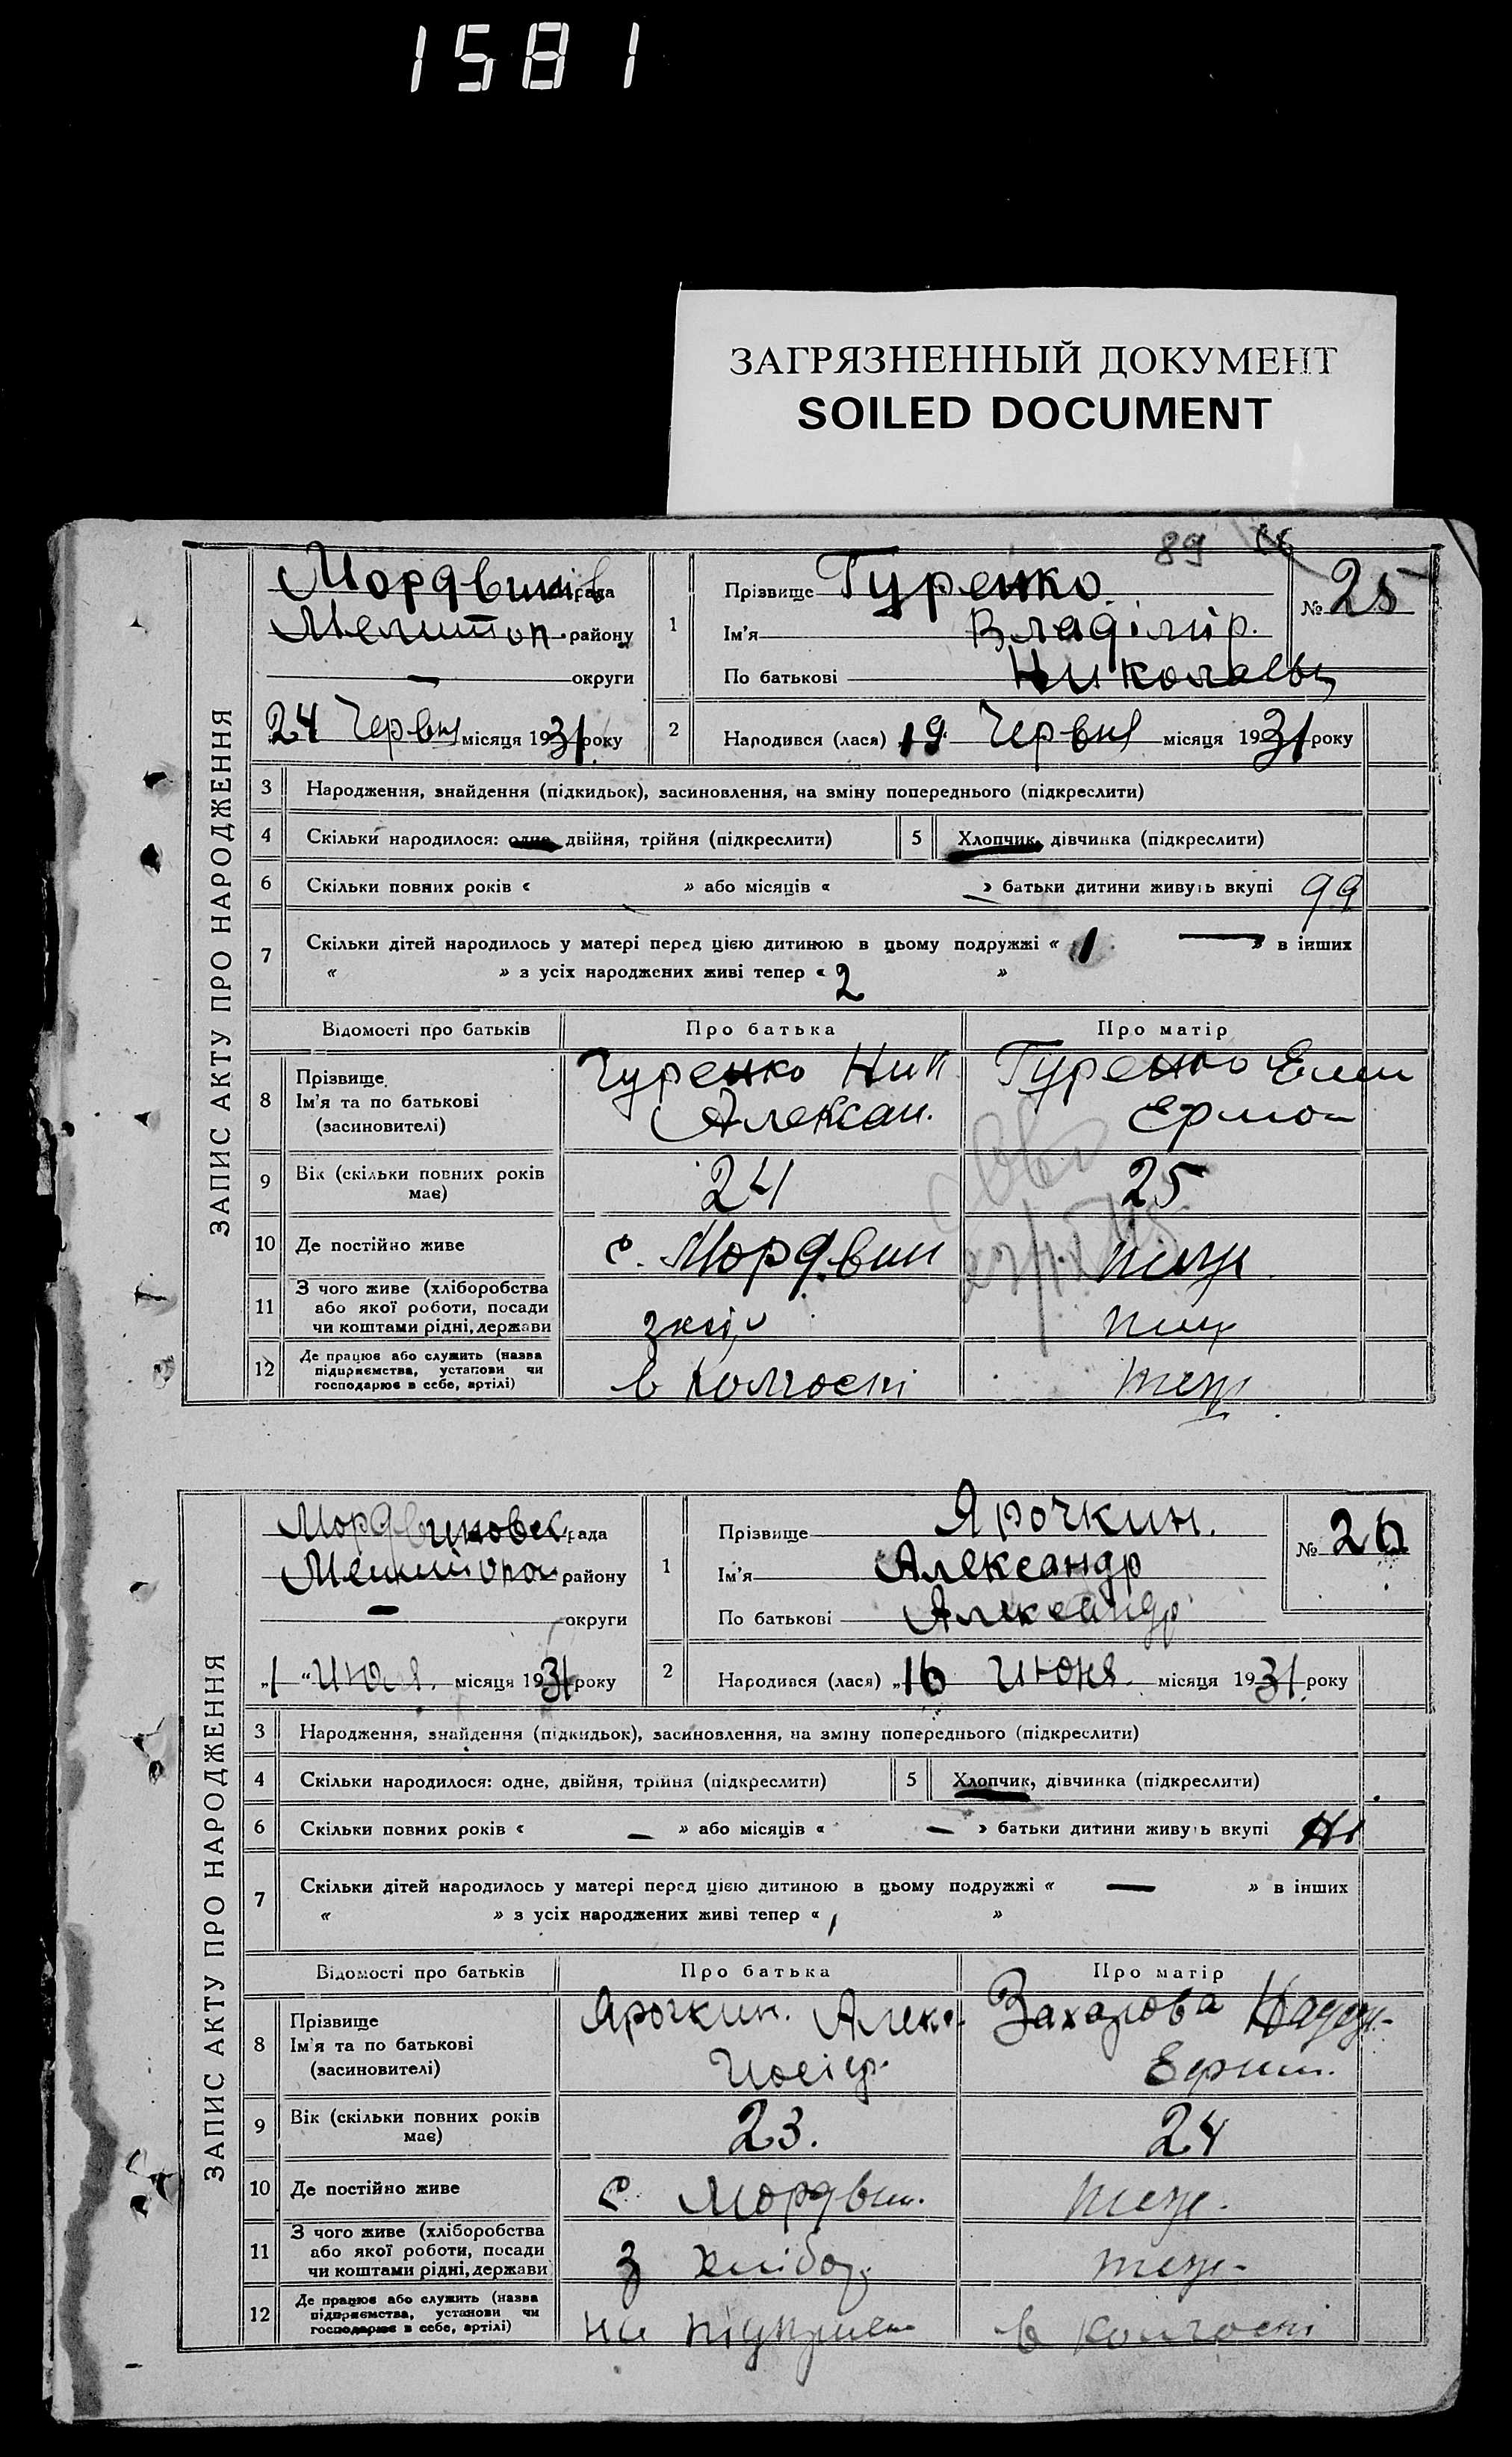 1581
ЗАГРЯЗНЕННЫЙ ДОКУМЕНТ
SOILED DOCUMENT
89
ЗАПИС АКТУ ПРО НАРОДЖЕННЯ
Мордвинів рада
Мелитоп. району
— округи
24 Червня місяця 1931 року
1 Прізвище Гуренко
№ 25
Ім'я Владімір.
По батькові Николаевич
2 Народився (лася) 19 Червня місяця 1931 року
3 Народження, знайдення (підкидьок), засиновлення, на зміну попереднього (підкреслити)
4 Скільки народилося: одне, двійня, трійня (підкреслити) 5 Хлопчик, дівчинка (підкреслити)
6 Скільки повних років « » або місяців « — » батьки дитини живуть вкупі
7 Скільки дітей народилось у матері перед цією дитиною в цьому подружжі « 1 — » в інших
« » з усіх народжених живі тепер « 2 »
Відомості про батьків Про батька Про матір
8 Прізвище
Ім'я та по батькові
(засиновителі)
Гуренко Ник
Алексан.
Гуренко
9 Вік (скільки повних років має) 24 25
10 Де постійно живе с. Мордвин теж
11 З чого живе (хліборобства
або якої роботи, посади
чи коштами рідні, держави
теж
12 Де працює або служить (назва
підприємства, установи чи
господарює в себе, артілі)
в колгоспі теж
ЗАПИС АКТУ ПРО НАРОДЖЕННЯ
Мордвиновск рада
Мелитопол району
— округи
„1“ Июля. місяця 1931 року
1 Прізвище Ярочкин.
№ 26
Ім'я Александр
По батькові Александр
2 Народився (лася) „16 Июня. місяця 1931 року
3 Народження, знайдення (підкидьок), засиновлення, на зміну попереднього (підкреслити)
4 Скільки народилося: одне, двійня, трійня (підкреслити) 5 Хлопчик, дівчинка (підкреслити)
6 Скільки повних років « — » або місяців « — » батьки дитини живуть вкупі Ні
7 Скільки дітей народилось у матері перед цією дитиною в цьому подружжі « — » в інших
« » з усіх народжених живі тепер « 1 »
Відомості про батьків Про батька Про матір
8 Прізвище
Ім'я та по батькові
(засиновителі)
Ярочкин. Алекс.
Захарова Надеж.
9 Вік (скільки повних років має) 23. 24
10 Де постійно живе с. Мордвин. теж.
11 З чого живе (хліборобства
або якої роботи, посади
чи коштами рідні, держави
з хлібор. теж.
12 Де працює або служить (назва
підприємства, установи чи
господарює в себе, артілі)
на підприєм в колгоспі